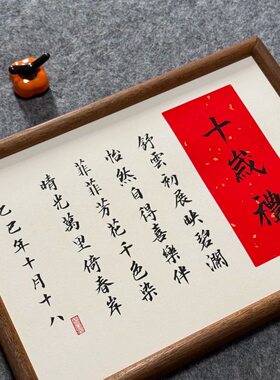 十歲禮
舒雲初展映碧瀾
怡然自得喜樂伴
菲菲芳花千色染
晴光萬里倚春岸
乙巳年十月十八